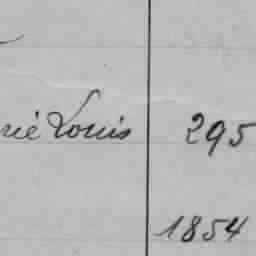 rié Louis 295
1854